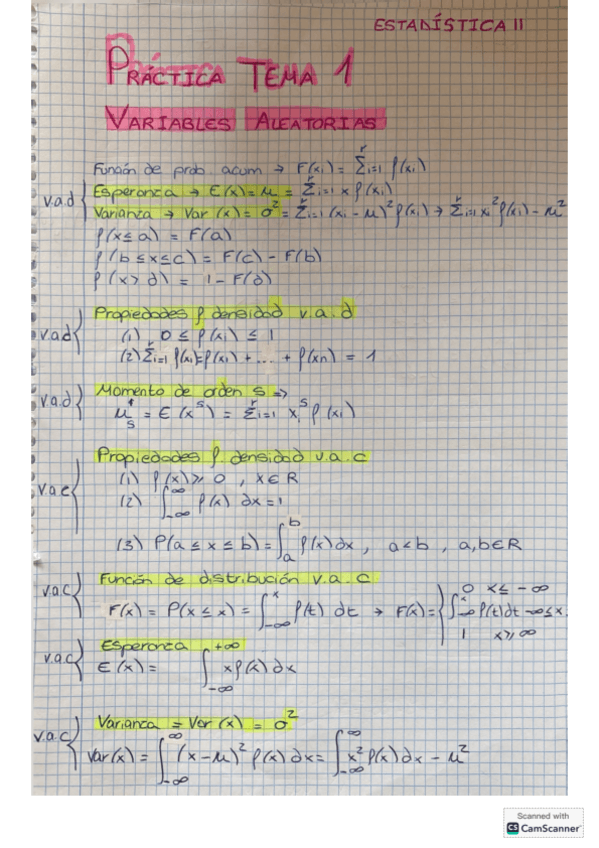 ESTADÍSTICA II
PRÁCTICA TEMA 1
VARIABLES ALEATORIAS
Función de prob. acum → F(xi) = Σi=1^r f(xi)
v.a.d { Esperanza → E(x) = μ = Σi=1^r x f(xi)
Varianza → Var (x) = σ² = Σi=1^r (xi - μ)² f(xi) → Σi=1^r xi² f(xi) - μ²
f(x ≤ a) = F(a)
f(b ≤ x ≤ c) = F(c) - F(b)
f(x > d) = 1 - F(d)
Propiedades f densidad v.a.d
v.a.d { (1) 0 ≤ f(xi) ≤ 1
(2) Σi=1^r f(xi) = f(x1) + ... + f(xn) = 1
v.a.d } Momento de orden s =>
μ's = E(x^s) = Σi=1^r xi^s f(xi)
Propiedades f densidad v.a.c
v.a.c } (1) f(x) ≥ 0 , x ∈ R
(2) ∫-∞^∞ f(x) dx = 1
(3) P(a ≤ x ≤ b) = ∫a^b f(x) dx , a < b , a, b ∈ R
v.a.c } Función de distribución v.a.c
F(x) = P(x ≤ x) = ∫-∞^x f(t) dt → F(x) = { 0 x ≤ -∞
∫-∞^x f(t) dt -∞ ≤ x
1 x ≥ ∞
v.a.c } Esperanza
E(x) = ∫-∞^+∞ x f(x) dx
v.a.c } Varianza = Var (x) = σ²
Var (x) = ∫-∞^∞ (x - μ)² f(x) dx = ∫-∞^∞ x² f(x) dx - μ²
Scanned with
CS CamScanner